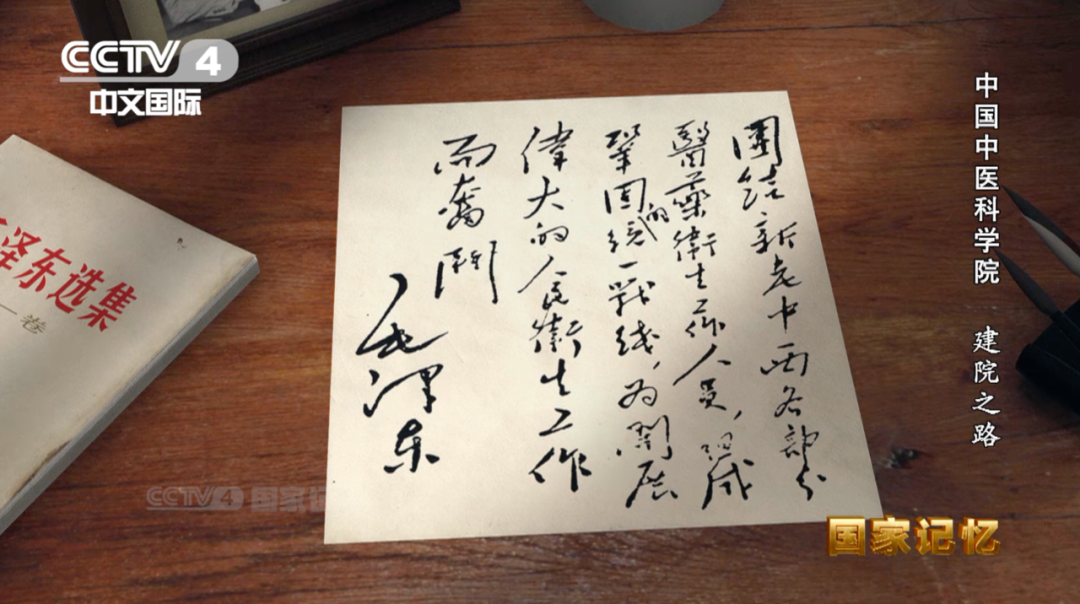 CCTV 4
中文国际
中国中医科学院 建院之路
團结新老中西各部分
醫藥衛生工作人員，组成
鞏固的统一戰线，为開展
偉大的人民衛生工作
而奮鬥
毛澤东
泽东选集
一卷
CCTV 4 国家记
国家记忆